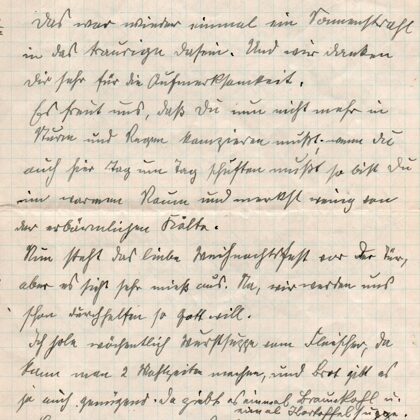 Das war wieder einmal ein Sonnenstrahl
in das traurige Dasein. Und wir danken
Dir sehr für die Aufmerksamkeit.
Es freut uns, daß Du nun nicht mehr in
Sturm und Regen kampieren mußt. wenn du
auch hier Tag um Tag schuften mußt so bist du
im warmen Raum und merkst wenig von
der erbärmlichen Kälte.
Nun steht das liebe Weihnachtsfest vor der Tür,
aber es sieht sehr mieß aus. Na, wir werden uns
schon durchhelfen so Gott will.
Ich hole wöchentlich Wurstsuppe vom Fleischer, da
kann man 2 Mahlzeiten machen, und Brot gibt es
ja auch genügend. Da giebts einmal Braunkohl u.
einmal Kartoffelsuppe.